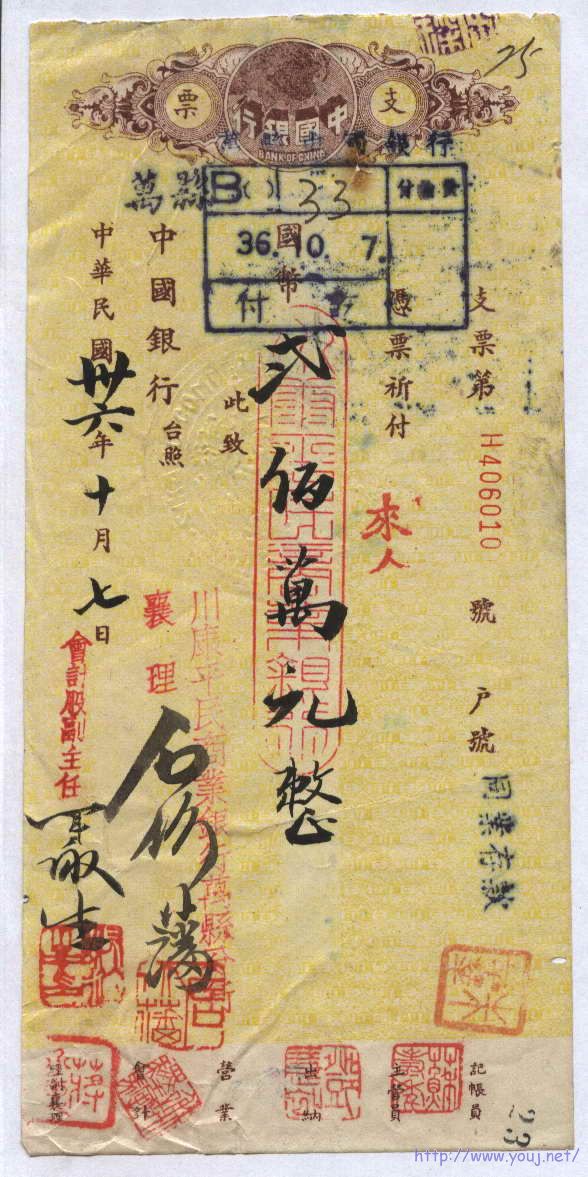 25
支票
中國銀行
BANK OF CHINA
行
B( ) 33
付
36. 10. 7.
付
支票第 H406010 號 戶號 同業存款
憑票祈付 來人
國幣 弍佰萬元整
此致
萬縣
中國銀行 台照
川康平民商業銀行萬縣
襄理
中華民國卅六年十月七日
會計股副主任
記帳員
主管員
出納
營業
會計
襄理
23
http://www.youj.net/